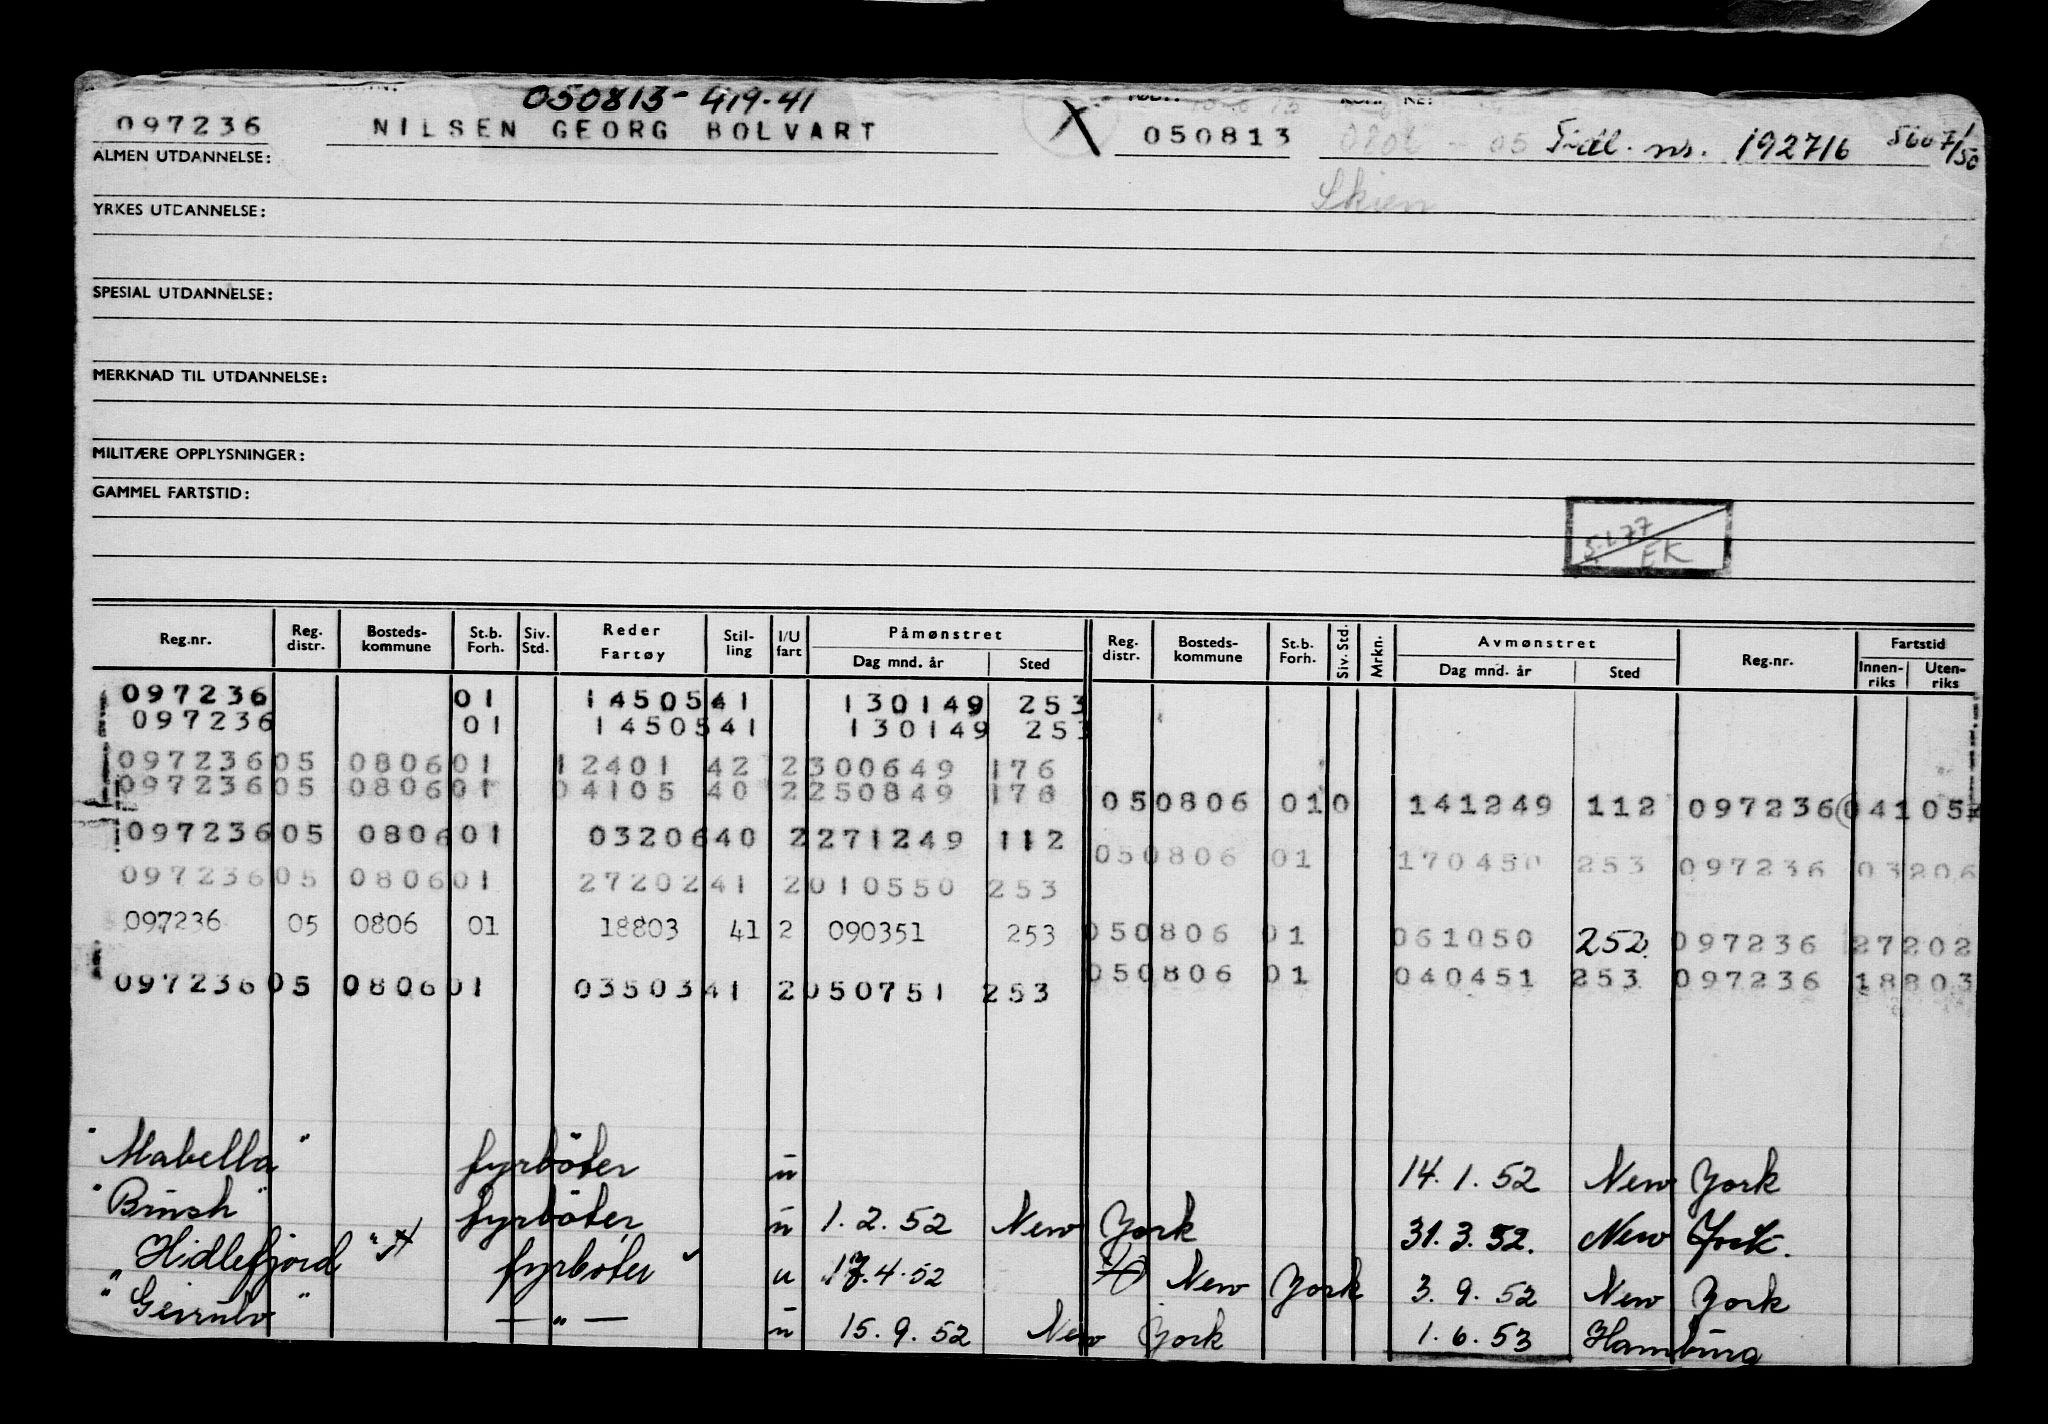 050813-419-41
097236 NILSEN GEORG BOLVART X FØDT: 050813 KOM. NR: Tidl. nr. 192716 5607/50
ALMEN UTDANNELSE:
Skien
YRKES UTDANNELSE:
SPESIAL UTDANNELSE:
MERKNAD TIL UTDANNELSE:
MILITÆRE OPPLYSNINGER:
GAMMEL FARTSTID:
5.1.77
EK
Reg.nr. Reg. distr. Bosteds-kommune St.b. Forh. Siv. Std. Reder Fartøy Stil-ling I/U fart Påmønstret Dag mnd. år Sted Reg. distr. Bosteds-kommune St.b. Forh. Siv. Std. Mrkn. Avmønstret Dag mnd. år Sted Reg.nr. Fartstid Innen-riks Uten-riks
097236 01 14505 41 130149 253
097236 01 14505 41 130149 253
097236 05 0806 01 12401 42 2 300649 176
097236 05 0806 01 04105 40 2 250849 176 05 0806 01 0 141249 112 097236 04105
097236 05 0806 01 03206 40 2 271249 112 05 0806 01 170450 253 097236 03206
097236 05 0806 01 27202 41 2 010550 253
097236 05 0806 01 18803 41 2 090351 253 05 0806 01 061050 252. 097236 27202
097236 05 0806 01 03503 41 2 050751 253 05 0806 01 040451 253 097236 18803
"Mabella" fyrböter u 14.1.52 New York
fyrböter u 1.2.52 New York 31.3.52. New York.
Hidlefjord" fyrböter u 17.4.52 New York 3.9.52 New York
"Geirulv" — " — u 15.9.52 New York 1.6.53 Hamburg